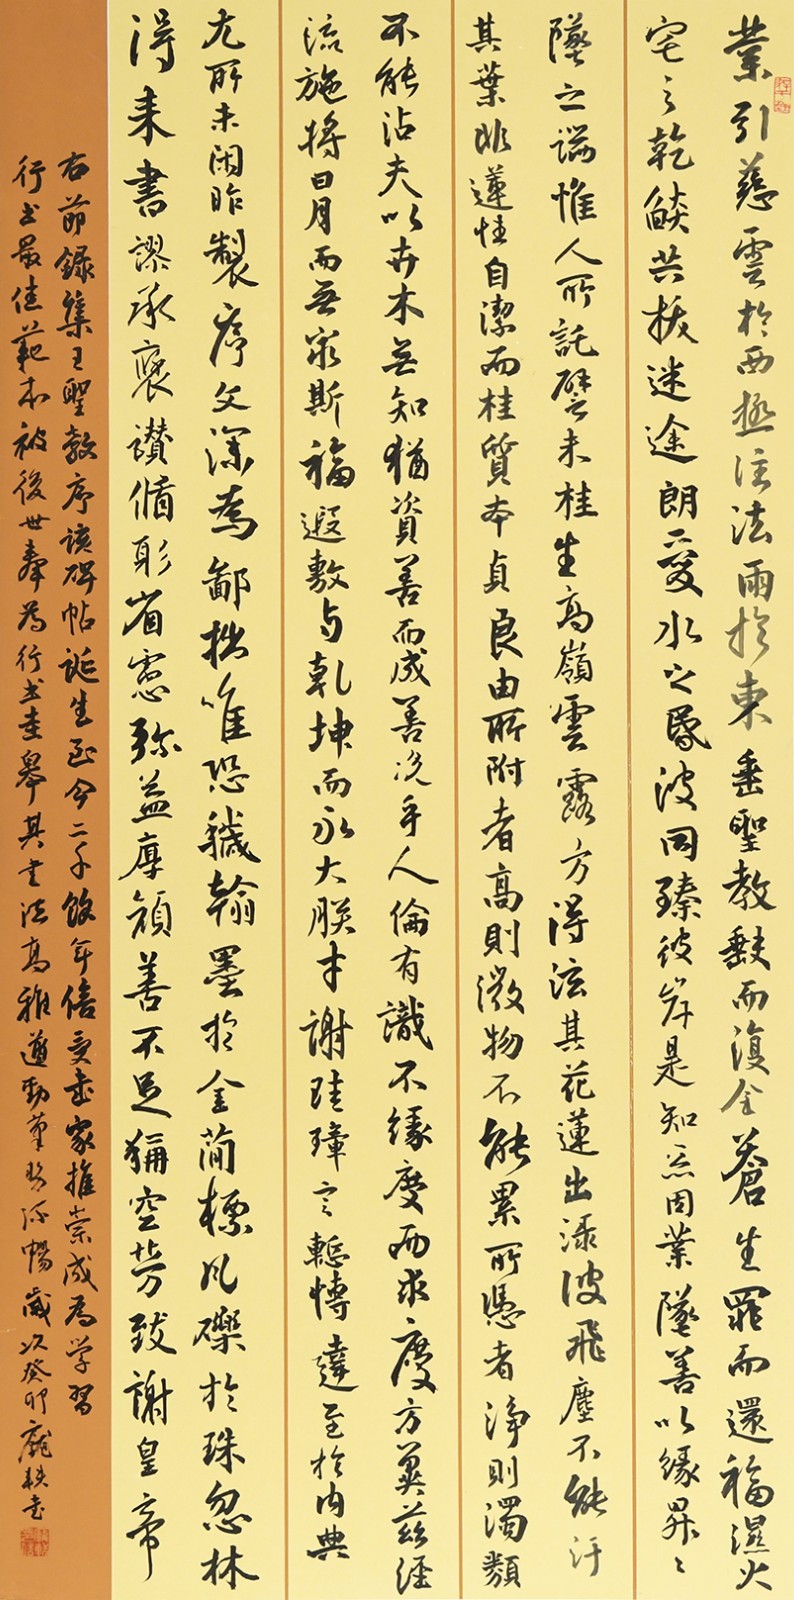 業引慈雲於西極注法雨於東垂聖教缺而復全蒼生罪而還福濕火
宅之乾焰共拔迷途朗愛水之昏波同臻彼岸是知惡因業墜善以緣昇〻
墜之端惟人所託譬夫桂生高嶺雲露方得泫其花蓮出淥波飛塵不能汙
其葉非蓮性自潔而桂質本貞良由所附者高則微物不能累所憑者淨則濁類
不能沾夫以卉木無知猶資善而成善況乎人倫有識不緣慶而求慶方冀茲經
流施將日月而無窮斯福遐敷與乾坤而永大朕才謝珪璋言慙博達至於內典
尤所未閑昨製序文深為鄙拙唯恐穢翰墨於金簡標瓦礫於珠忽林
得来書謬承褒讚循躬省慮彌益厚顏善不足稱空勞致謝皇帝
右節錄集王聖教序該碑帖誕生至今二千餘年倍受書家推崇成為学習
行书最佳範本被後世奉為行书圭臬其书法高雅遒勁流暢歲次癸卯龐軼書